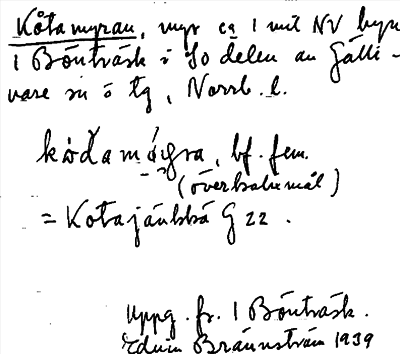 Kåtamyran, myr ca 1 mil NV byn
1 Böuträsk i So delen av Gälli-
vare sn o tg, Norrb. l.
kåďamỳra, bf. fem.
(överkalixmål)
= Kotajänkkä G 22.
uppg. fr. 1 Böuträsk.
Edvin Brännström 1939